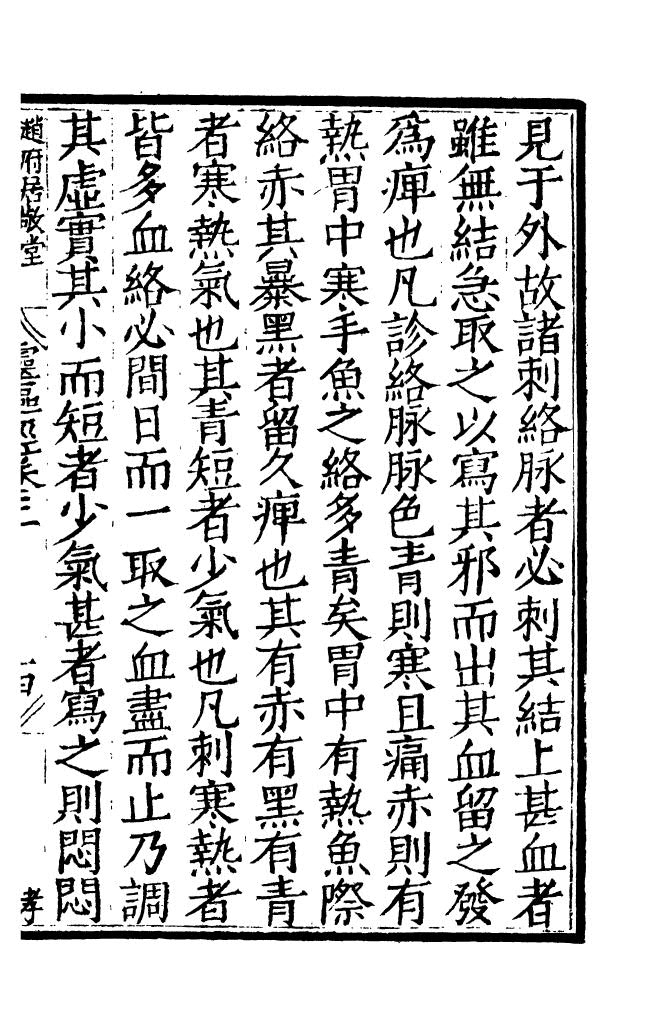 見于外故諸刺絡脉者必刺其結上甚血者
雖無結急取之以寫其邪而出其血留之發
爲痺也凡診絡脉脉色青則寒且痛赤則有
熱胃中寒手魚之絡多青矣胃中有熱魚際
絡赤其暴黑者留久痺也其有赤有黑有青
者寒熱氣也其青短者少氣也凡刺寒熱者
皆多血絡必間日而一取之血盡而止乃調
其虛實其小而短者少氣甚者寫之則悶悶
趙府居敬堂
孝